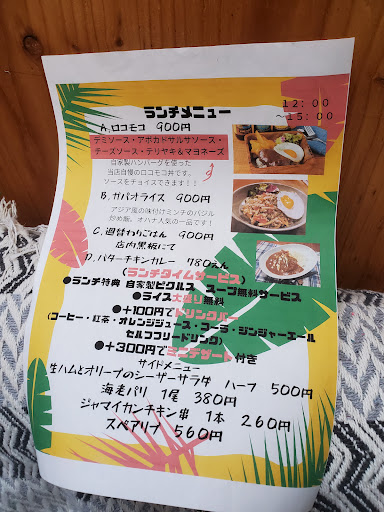 ランチメニュー
12:00
～15:00
A.ロコモコ 900円
デミソース・アボカドサルサソース・
チーズソース・テリヤキ&マヨネーズ
自家製ハンバーグを使った
当店自慢のロコモコ丼です。
ソースをチョイスできます!!
B.ガパオライス 900円
アジア風の味付けミンチのバジル
炒め飯、オハナ人気の一品です!
C.週替わりごはん 900円
店内黒板にて
D.バターチキンカレー 780えん
(ランチタイムサービス)
●ランチ特典 自家製ピクルス スープ無料サービス
●ライス大盛り無料
●+100円でドリンクバー
(コーヒー・紅茶・オレンジジュース・コーラ・ジンジャーエール
セルフフリードリンク)
●+300円でミニデザート付き
サイドメニュー
生ハムとオリーブのシーザーサラダ ハーフ 500円
海老パリ 1尾 380円
ジャマイカンチキン串 1本 260円
スペアリブ 560円